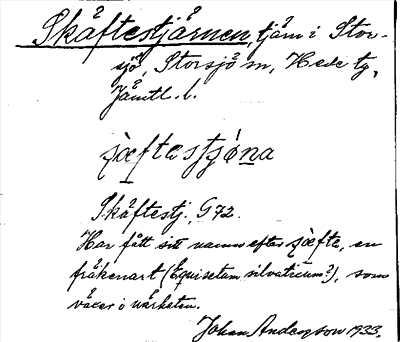 Skåftestjärnen, tjärn i Stor-
sjö, Storsjö sn, Hede tg,
Jämtl. l.
Skåftestj. G 72.
Har fått sitt namn efter sjæfte, en
fräkenart (Equisetum silvaticum?), som
växer i närheten.
Johan Anderson 1933.